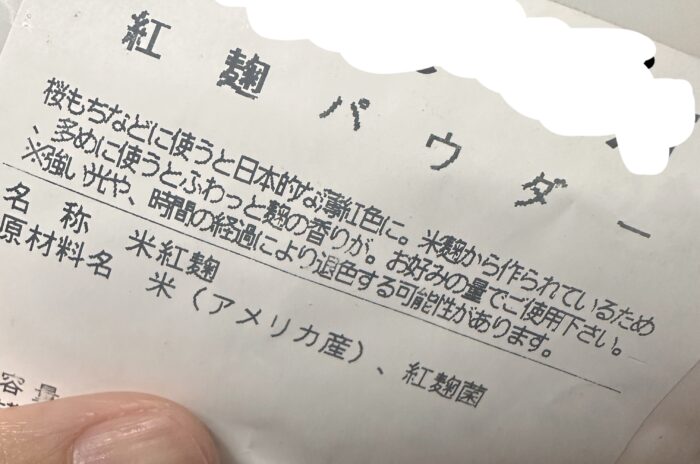 紅麹パウダー
桜もちなどに使うと日本的な薄紅色に。米麹から作られているため
、多めに使うとふわっと麹の香りが。お好みの量でご使用下さい。
※強い光や、時間の経過により退色する可能性があります。
名称 米紅麹
原材料名 米(アメリカ産)、紅麹菌
容量